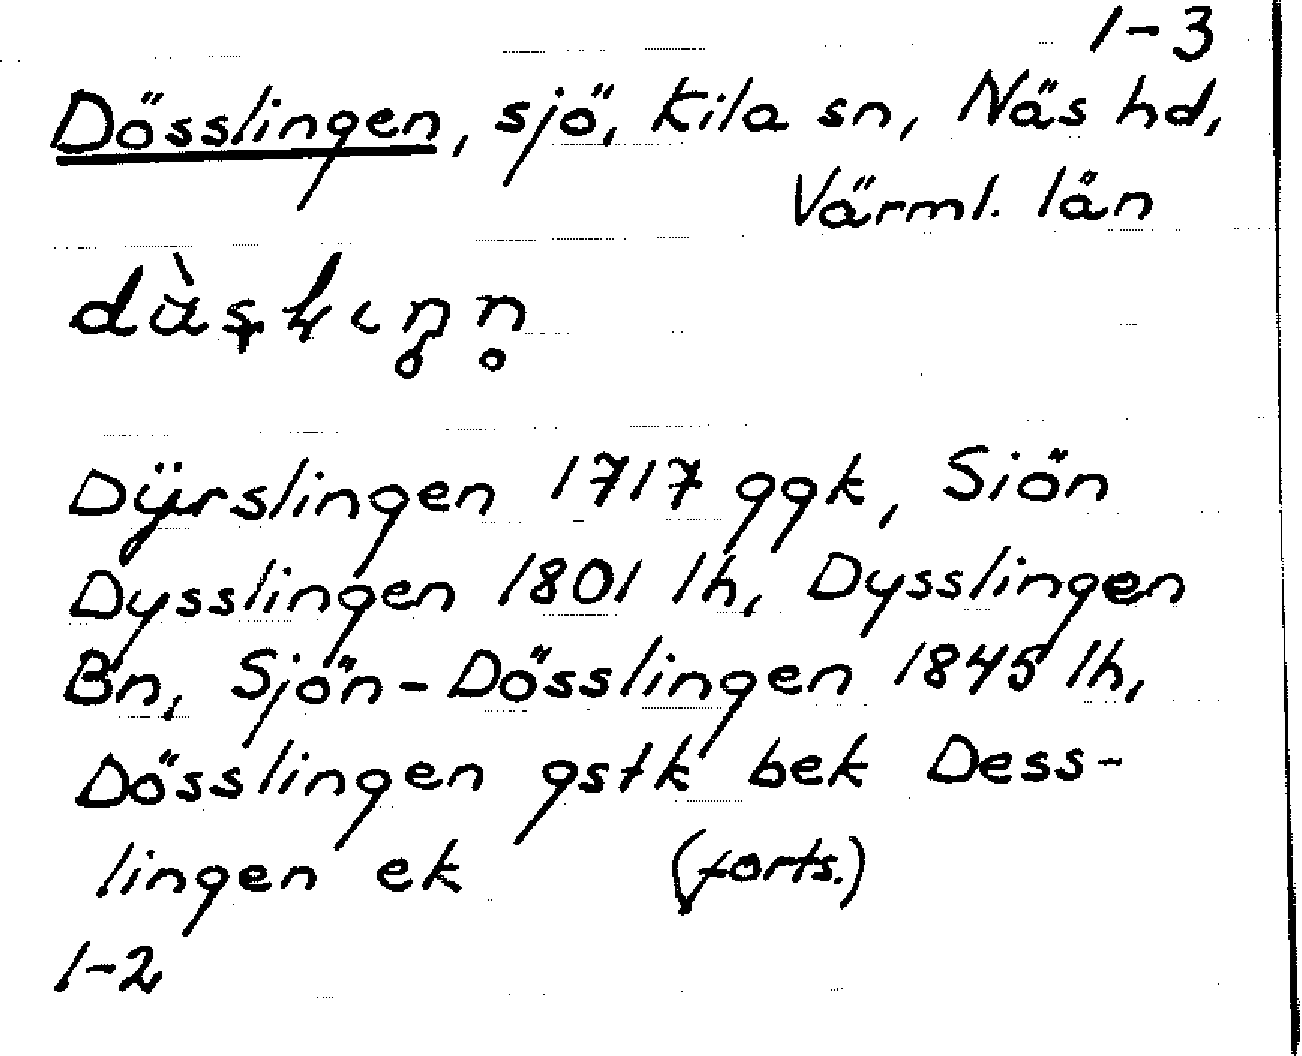 1-3
Dösslingen, sjö, Kila sn, Näs hd,
Värml. län
Dÿrslingen 1717 ggk, Siön
Dysslingen 1801 lh, Dysslingen
Bn, Sjön-Dösslingen 1845 lh,
Dösslingen gstk bek Dess-
lingen ek (forts.)
1-2